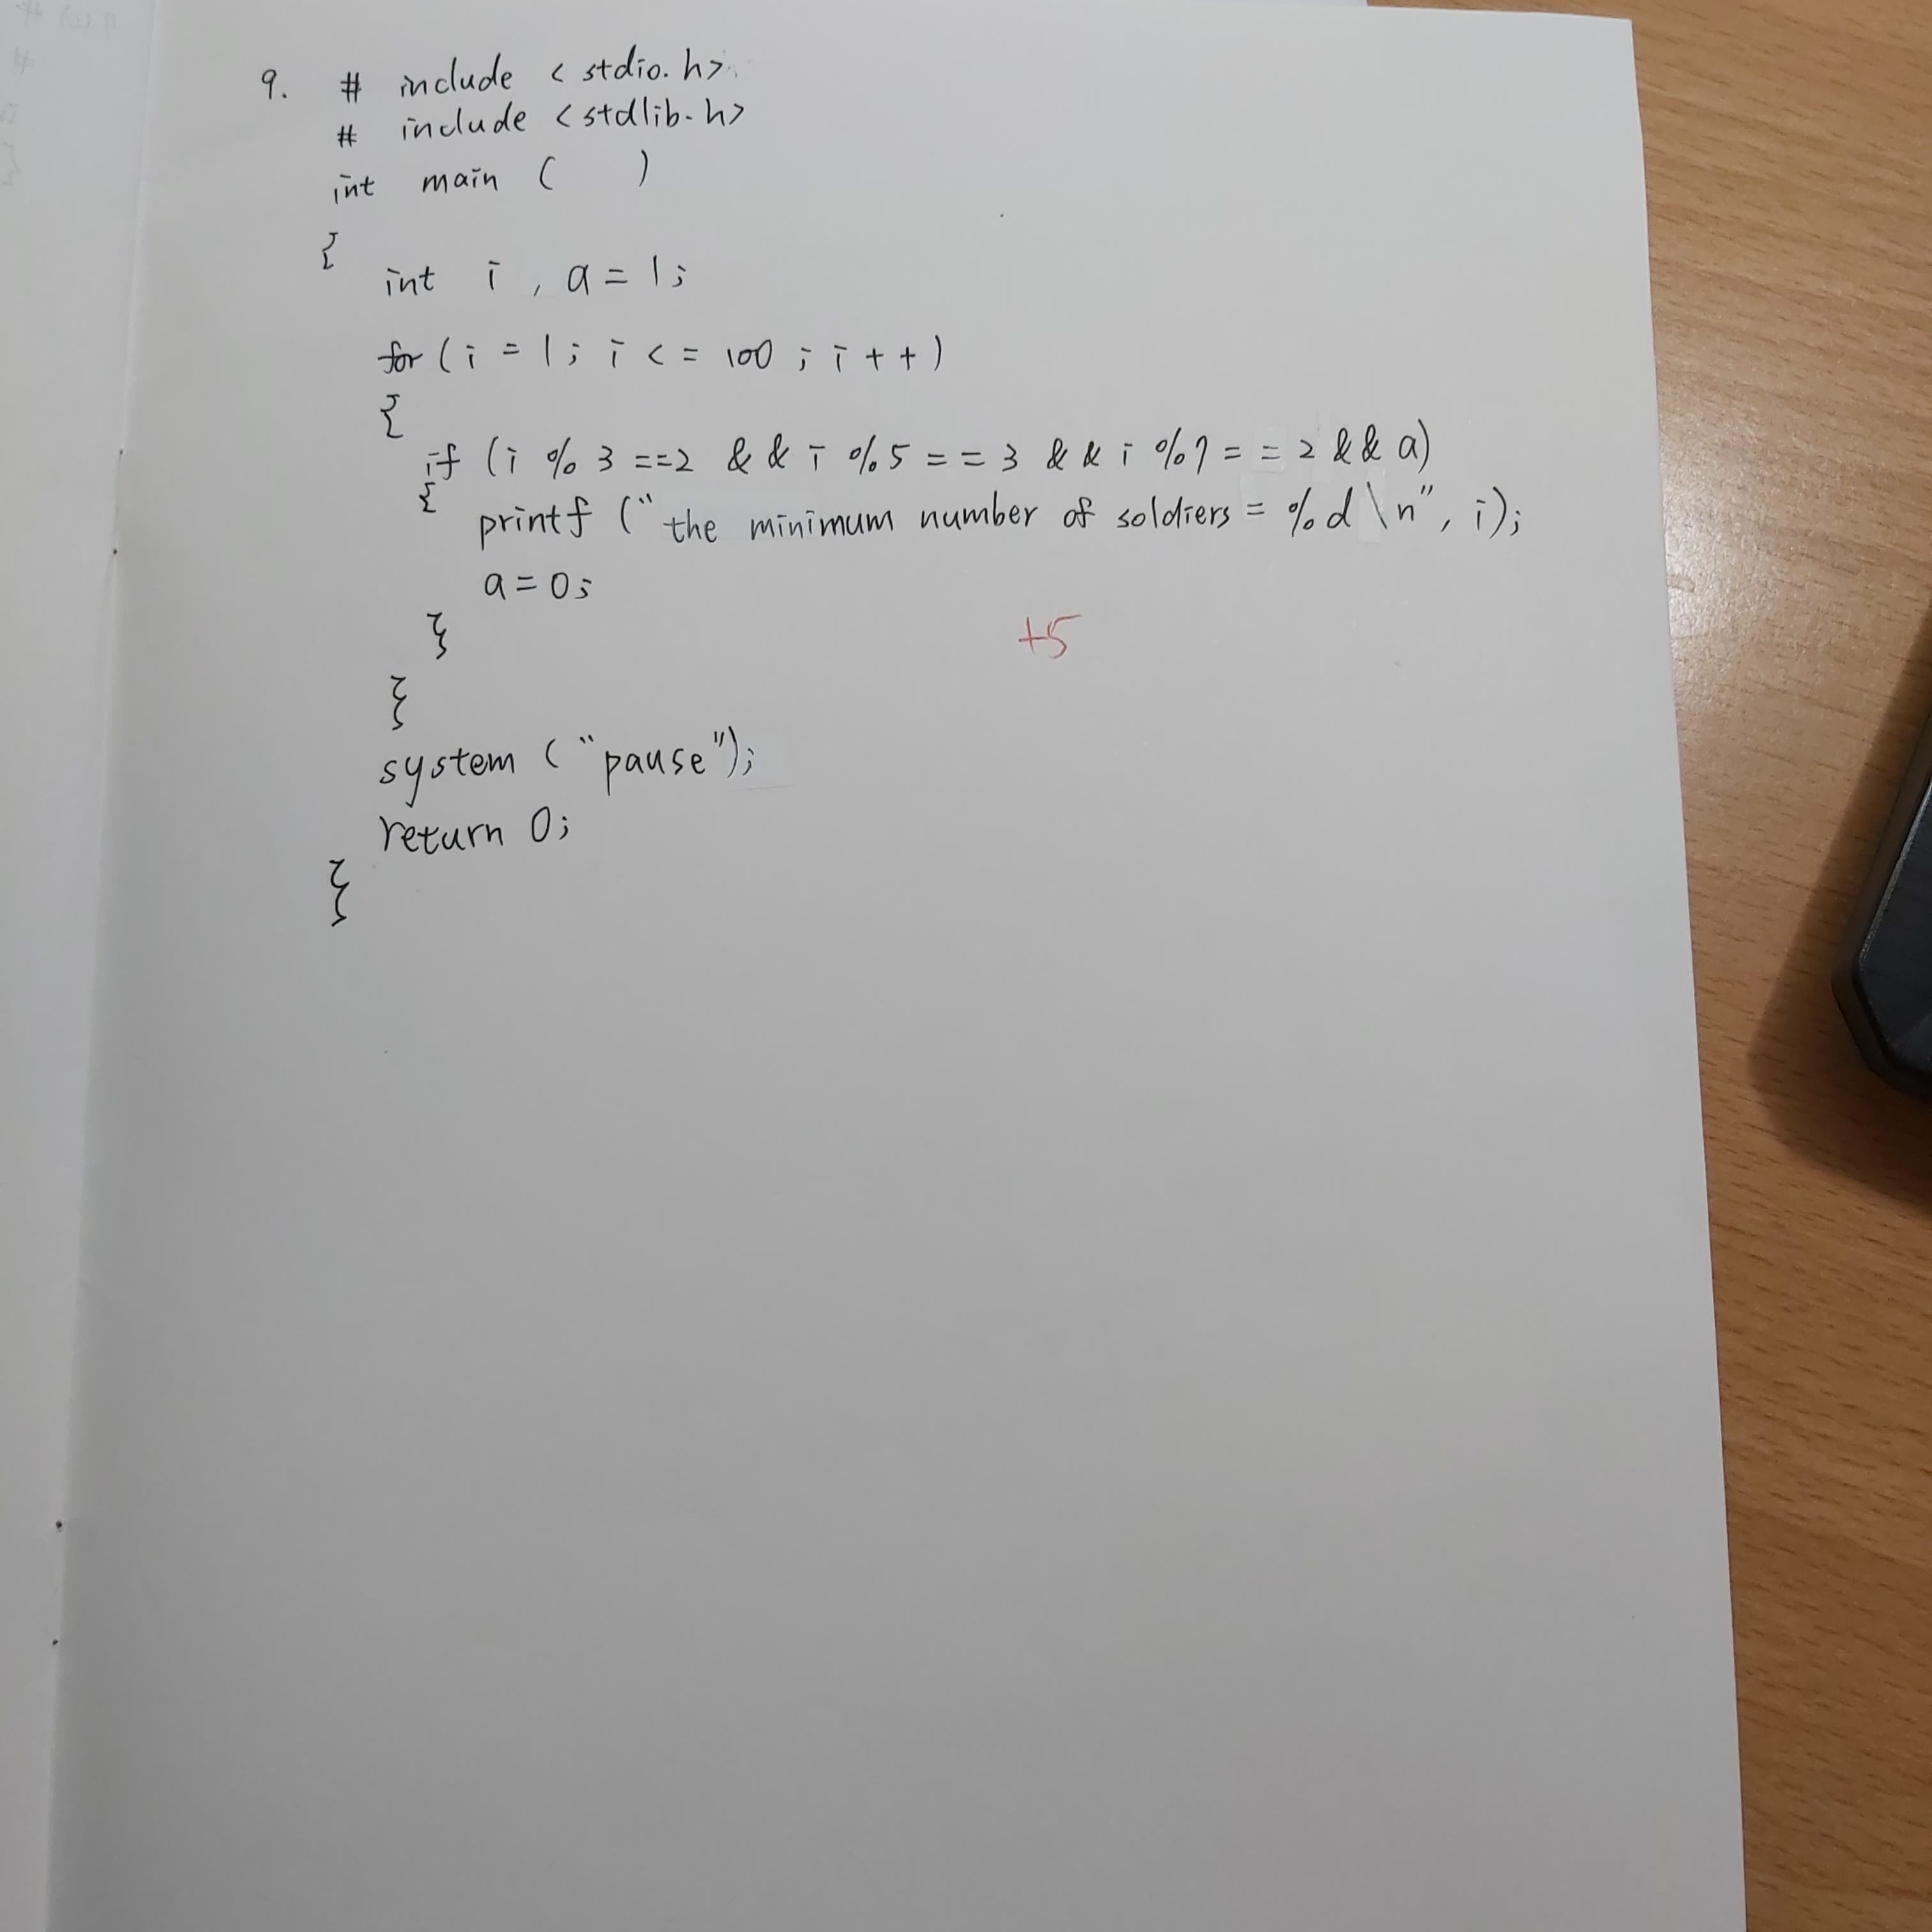 9. # include < stdio.h>
# include <stdlib.h>
int main ( )
{
int i , a = 1;
for ( i = 1 ; i < = 100 ; i + + )
{
if ( i % 3 ==2 & & i % 5 = = 3 & & i % 7 = = 2 & & a)
{
printf ("the minimum number of soldiers = %d \n", i);
a = 0;
}
+5
}
system ("pause");
return 0;
}